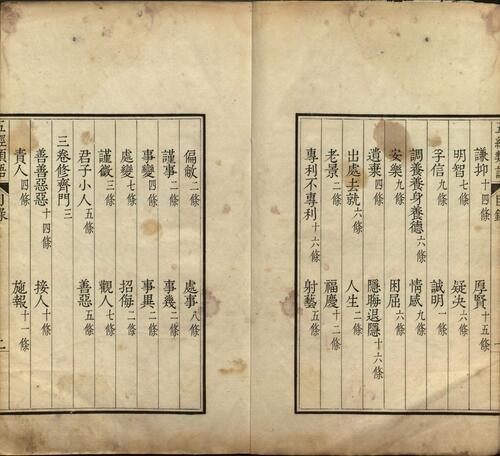 謙抑十四條 厚賢十五條
明智七條 疑決六條
孚信九條 誠明一條
調養養身養德六條 情感九條
安樂九條 困屈六條
遺棄四條 隱聯退隱十六條
出處去就六條 人生二條
老景二條 福慶十二條
專利不專利十六條 射藝五條
偏敵二條 處事八條
謹事二條 事幾二條
事變四條 事異二條
處變七條 招侮二條
謹微三條 觀人七條
君子小人五條 善惡五條
三卷修齊門三
善善惡惡十四條 接人十條
責人四條 施報十一條
五經類語 目錄 二